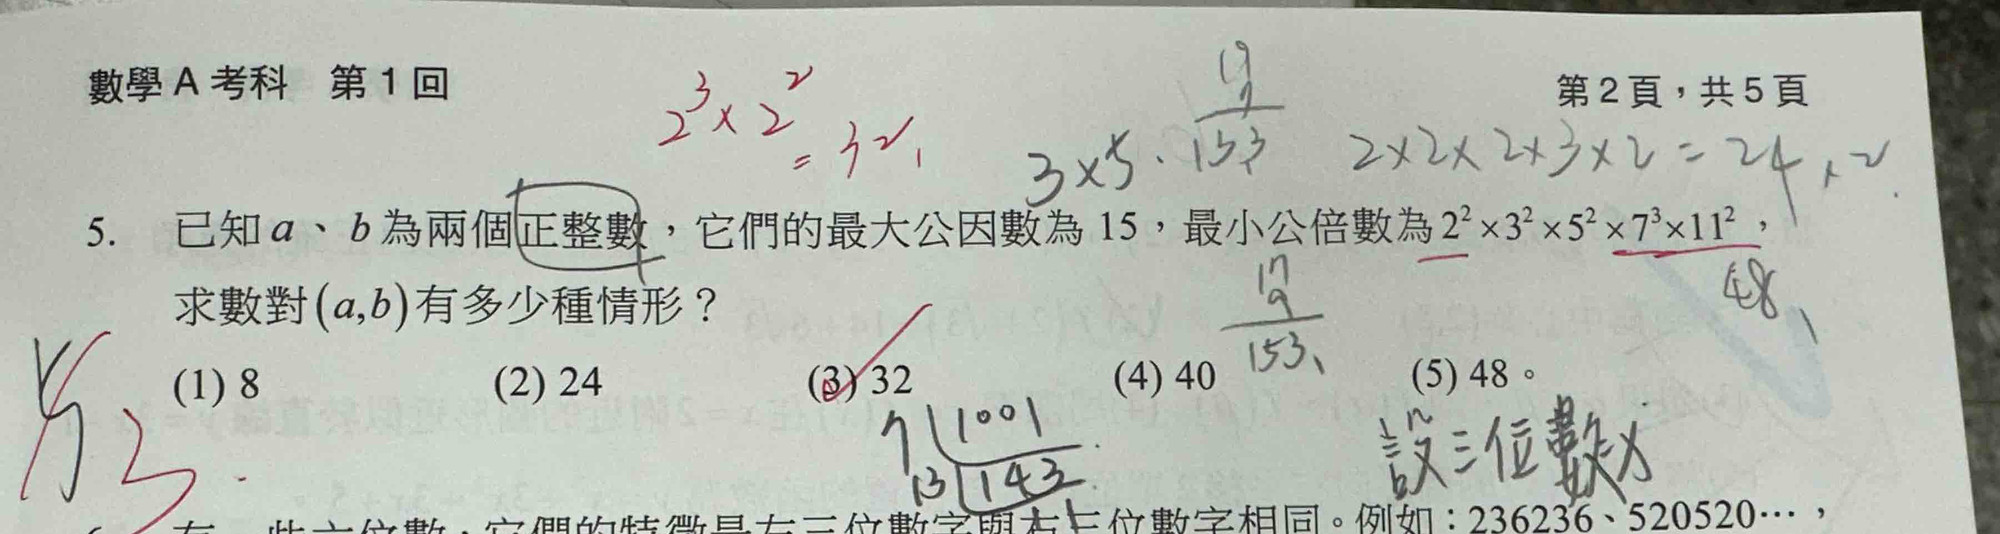 數學 A 考科 第 1 回
第 2 頁，共 5 頁
2³×2²
=32
17
9
153
3×5
2×2×2×3×2=24
×2
48
5. 已知 a、b 為兩個正整數，它們的最大公因數為 15，最小公倍數為 2²×3²×5²×7³×11²，
求數對(a,b)有多少種情形？
17
9
153
(1) 8 (2) 24 (3) 32 (4) 40 (5) 48。
3
7 1001
13 143
11
設三位數x
有一些六位數，它們的特徵是左三位數字與右三位數字相同。例如：236236、520520…，